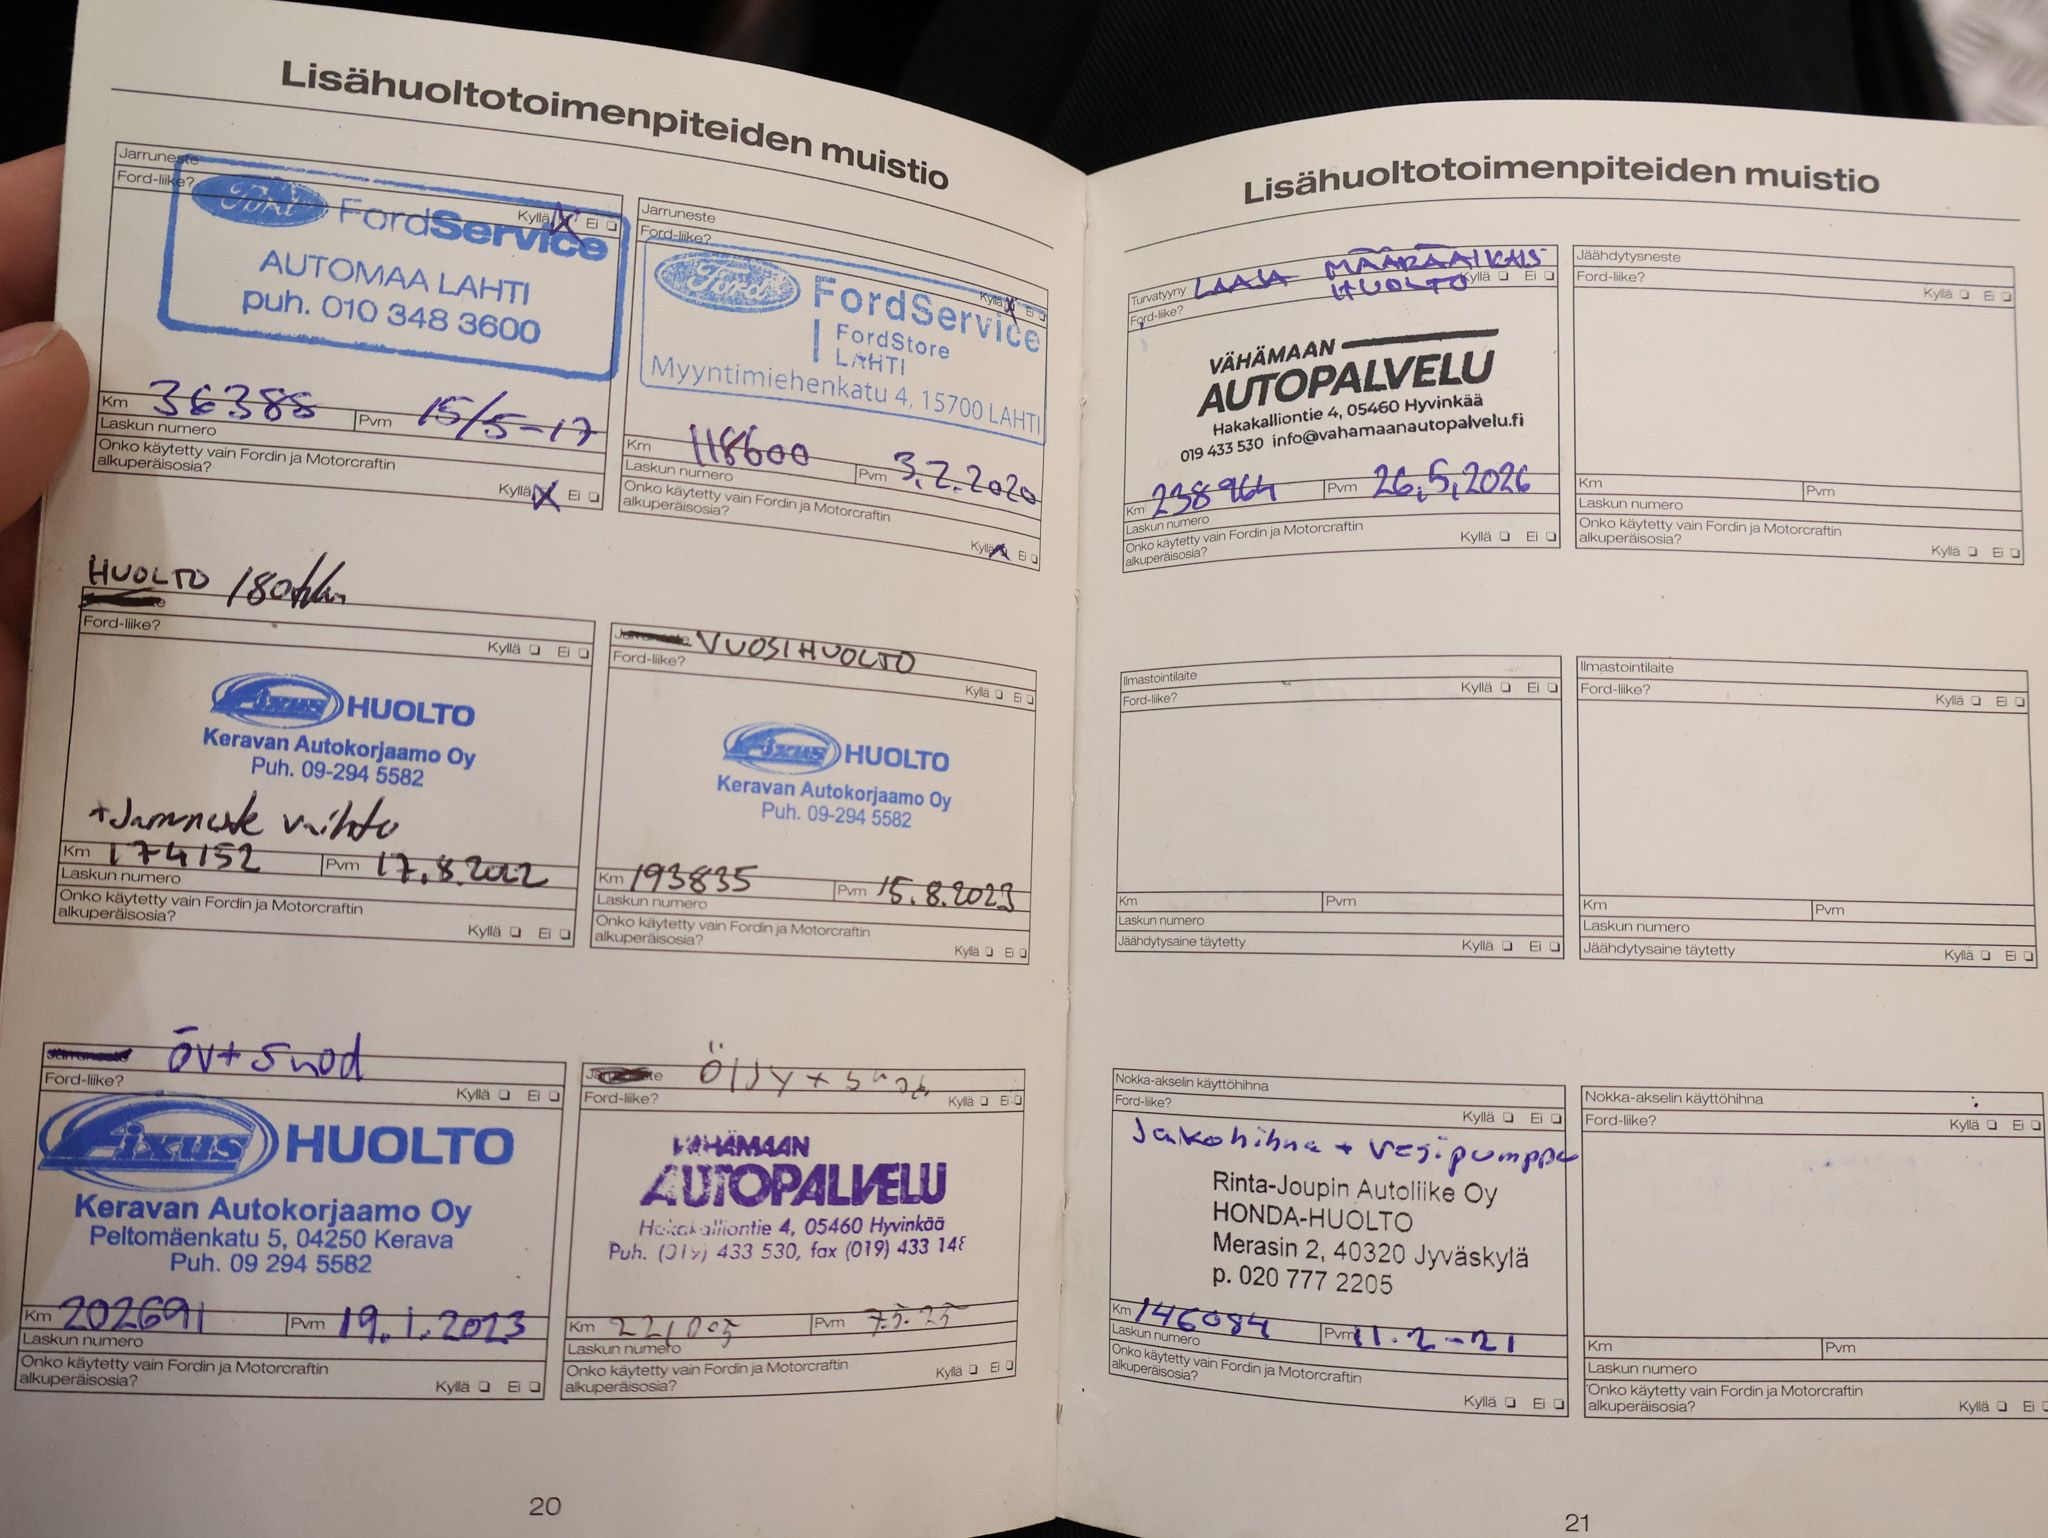 Lisähuoltotoimenpiteiden muistio
Jarruneste
Ford-liike?
Kyllä Ei
Ford
FordService
AUTOMAA LAHTI
puh. 010 348 3600
Km 36388 Pvm 15/5-17
Laskun numero
Onko käytetty vain Fordin ja Motorcraftin
alkuperäisosia?
Kyllä Ei
Jarruneste
Ford-liike?
Kyllä Ei
Ford
FordService
FordStore
LAHTI
Myyntimiehenkatu 4, 15700 LAHTI
Km 118600 Pvm 3.2.2020
Laskun numero
Onko käytetty vain Fordin ja Motorcraftin
alkuperäisosia?
Kyllä Ei
HUOLTO 180tkm
Ford-liike?
Kyllä Ei
Fixus HUOLTO
Keravan Autokorjaamo Oy
Puh. 09-294 5582
+Jarruneste vaihto
Km 174152 Pvm 17.8.2022
Laskun numero
Onko käytetty vain Fordin ja Motorcraftin
alkuperäisosia?
Kyllä Ei
Jarruneste VUOSIHUOLTO
Ford-liike?
Kyllä Ei
Fixus HUOLTO
Keravan Autokorjaamo Oy
Puh. 09-294 5582
Km 193835 Pvm 15.8.2023
Laskun numero
Onko käytetty vain Fordin ja Motorcraftin
alkuperäisosia?
Kyllä Ei
Jarruneste öv+suod
Ford-liike?
Kyllä Ei
Fixus HUOLTO
Keravan Autokorjaamo Oy
Peltomäenkatu 5, 04250 Kerava
Puh. 09 294 5582
Km 202691 Pvm 19.1.2023
Laskun numero
Onko käytetty vain Fordin ja Motorcraftin
alkuperäisosia?
Kyllä Ei
Jarruneste Öljy +
Ford-liike?
Kyllä Ei
VÄHÄMAAN
AUTOPALVELU
Hakakalliontie 4, 05460 Hyvinkää
Puh. (019) 433 530, fax (019) 433 148
Km Pvm 7.5.25
Laskun numero
Onko käytetty vain Fordin ja Motorcraftin
alkuperäisosia?
Kyllä Ei
20
Lisähuoltotoimenpiteiden muistio
Turvatyyny LAAJA MÄÄRÄAIKAIS
HUOLTO
Kyllä Ei
Ford-liike?
VÄHÄMAAN
AUTOPALVELU
Hakakalliontie 4, 05460 Hyvinkää
019 433 530 info@vahamaanautopalvelu.fi
Km 238964 Pvm 26.5.2026
Laskun numero
Onko käytetty vain Fordin ja Motorcraftin
alkuperäisosia?
Kyllä Ei
Jäähdytysneste
Ford-liike?
Kyllä Ei
Km Pvm
Laskun numero
Onko käytetty vain Fordin ja Motorcraftin
alkuperäisosia?
Kyllä Ei
Ilmastointilaite
Ford-liike?
Kyllä Ei
Km Pvm
Laskun numero
Jäähdytysaine täytetty Kyllä Ei
Ilmastointilaite
Ford-liike?
Kyllä Ei
Km Pvm
Laskun numero
Jäähdytysaine täytetty Kyllä Ei
Nokka-akselin käyttöhihna
Ford-liike?
Kyllä Ei
Jakohihna + vesipumppu
Rinta-Joupin Autoliike Oy
HONDA-HUOLTO
Merasin 2, 40320 Jyväskylä
p. 020 777 2205
Km 146084 Pvm 11.2-21
Laskun numero
Onko käytetty vain Fordin ja Motorcraftin
alkuperäisosia?
Kyllä Ei
Nokka-akselin käyttöhihna
Ford-liike?
Kyllä Ei
Km Pvm
Laskun numero
Onko käytetty vain Fordin ja Motorcraftin
alkuperäisosia?
Kyllä Ei
21